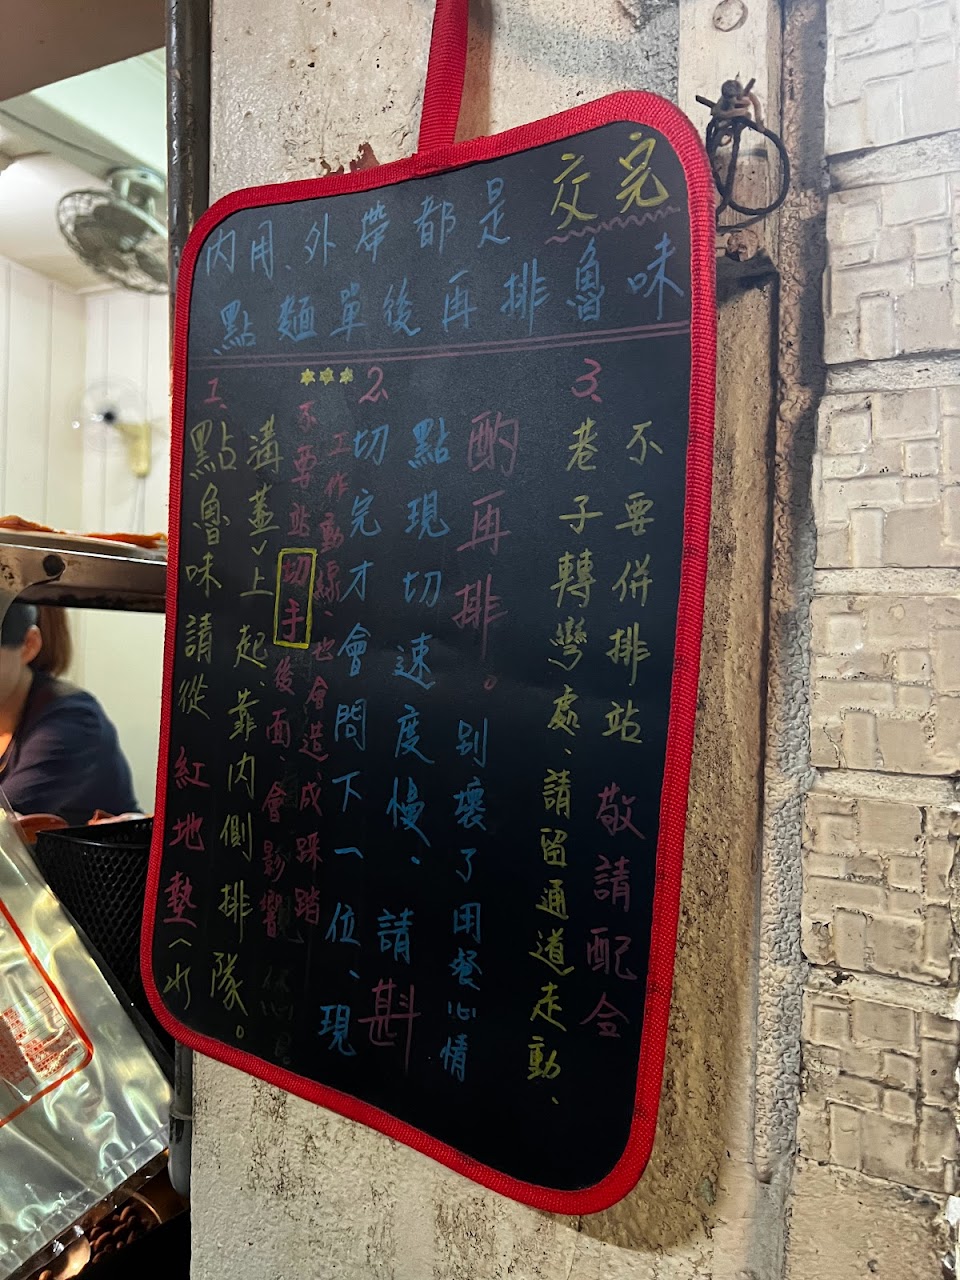 內用、外帶都是交完
點麵單後再排魯味
1、
點魯味請從紅地墊(水
溝蓋)上起、靠內側排隊。
***
不要站切手後面、會影響
工作動線、也會造成踩踏
2、
切完才會問下一位、現
點現切速度慢、請斟
酌再排。別壞了用餐心情
3、
巷子轉彎處、請留通道走動、
不要併排站 敬請配合